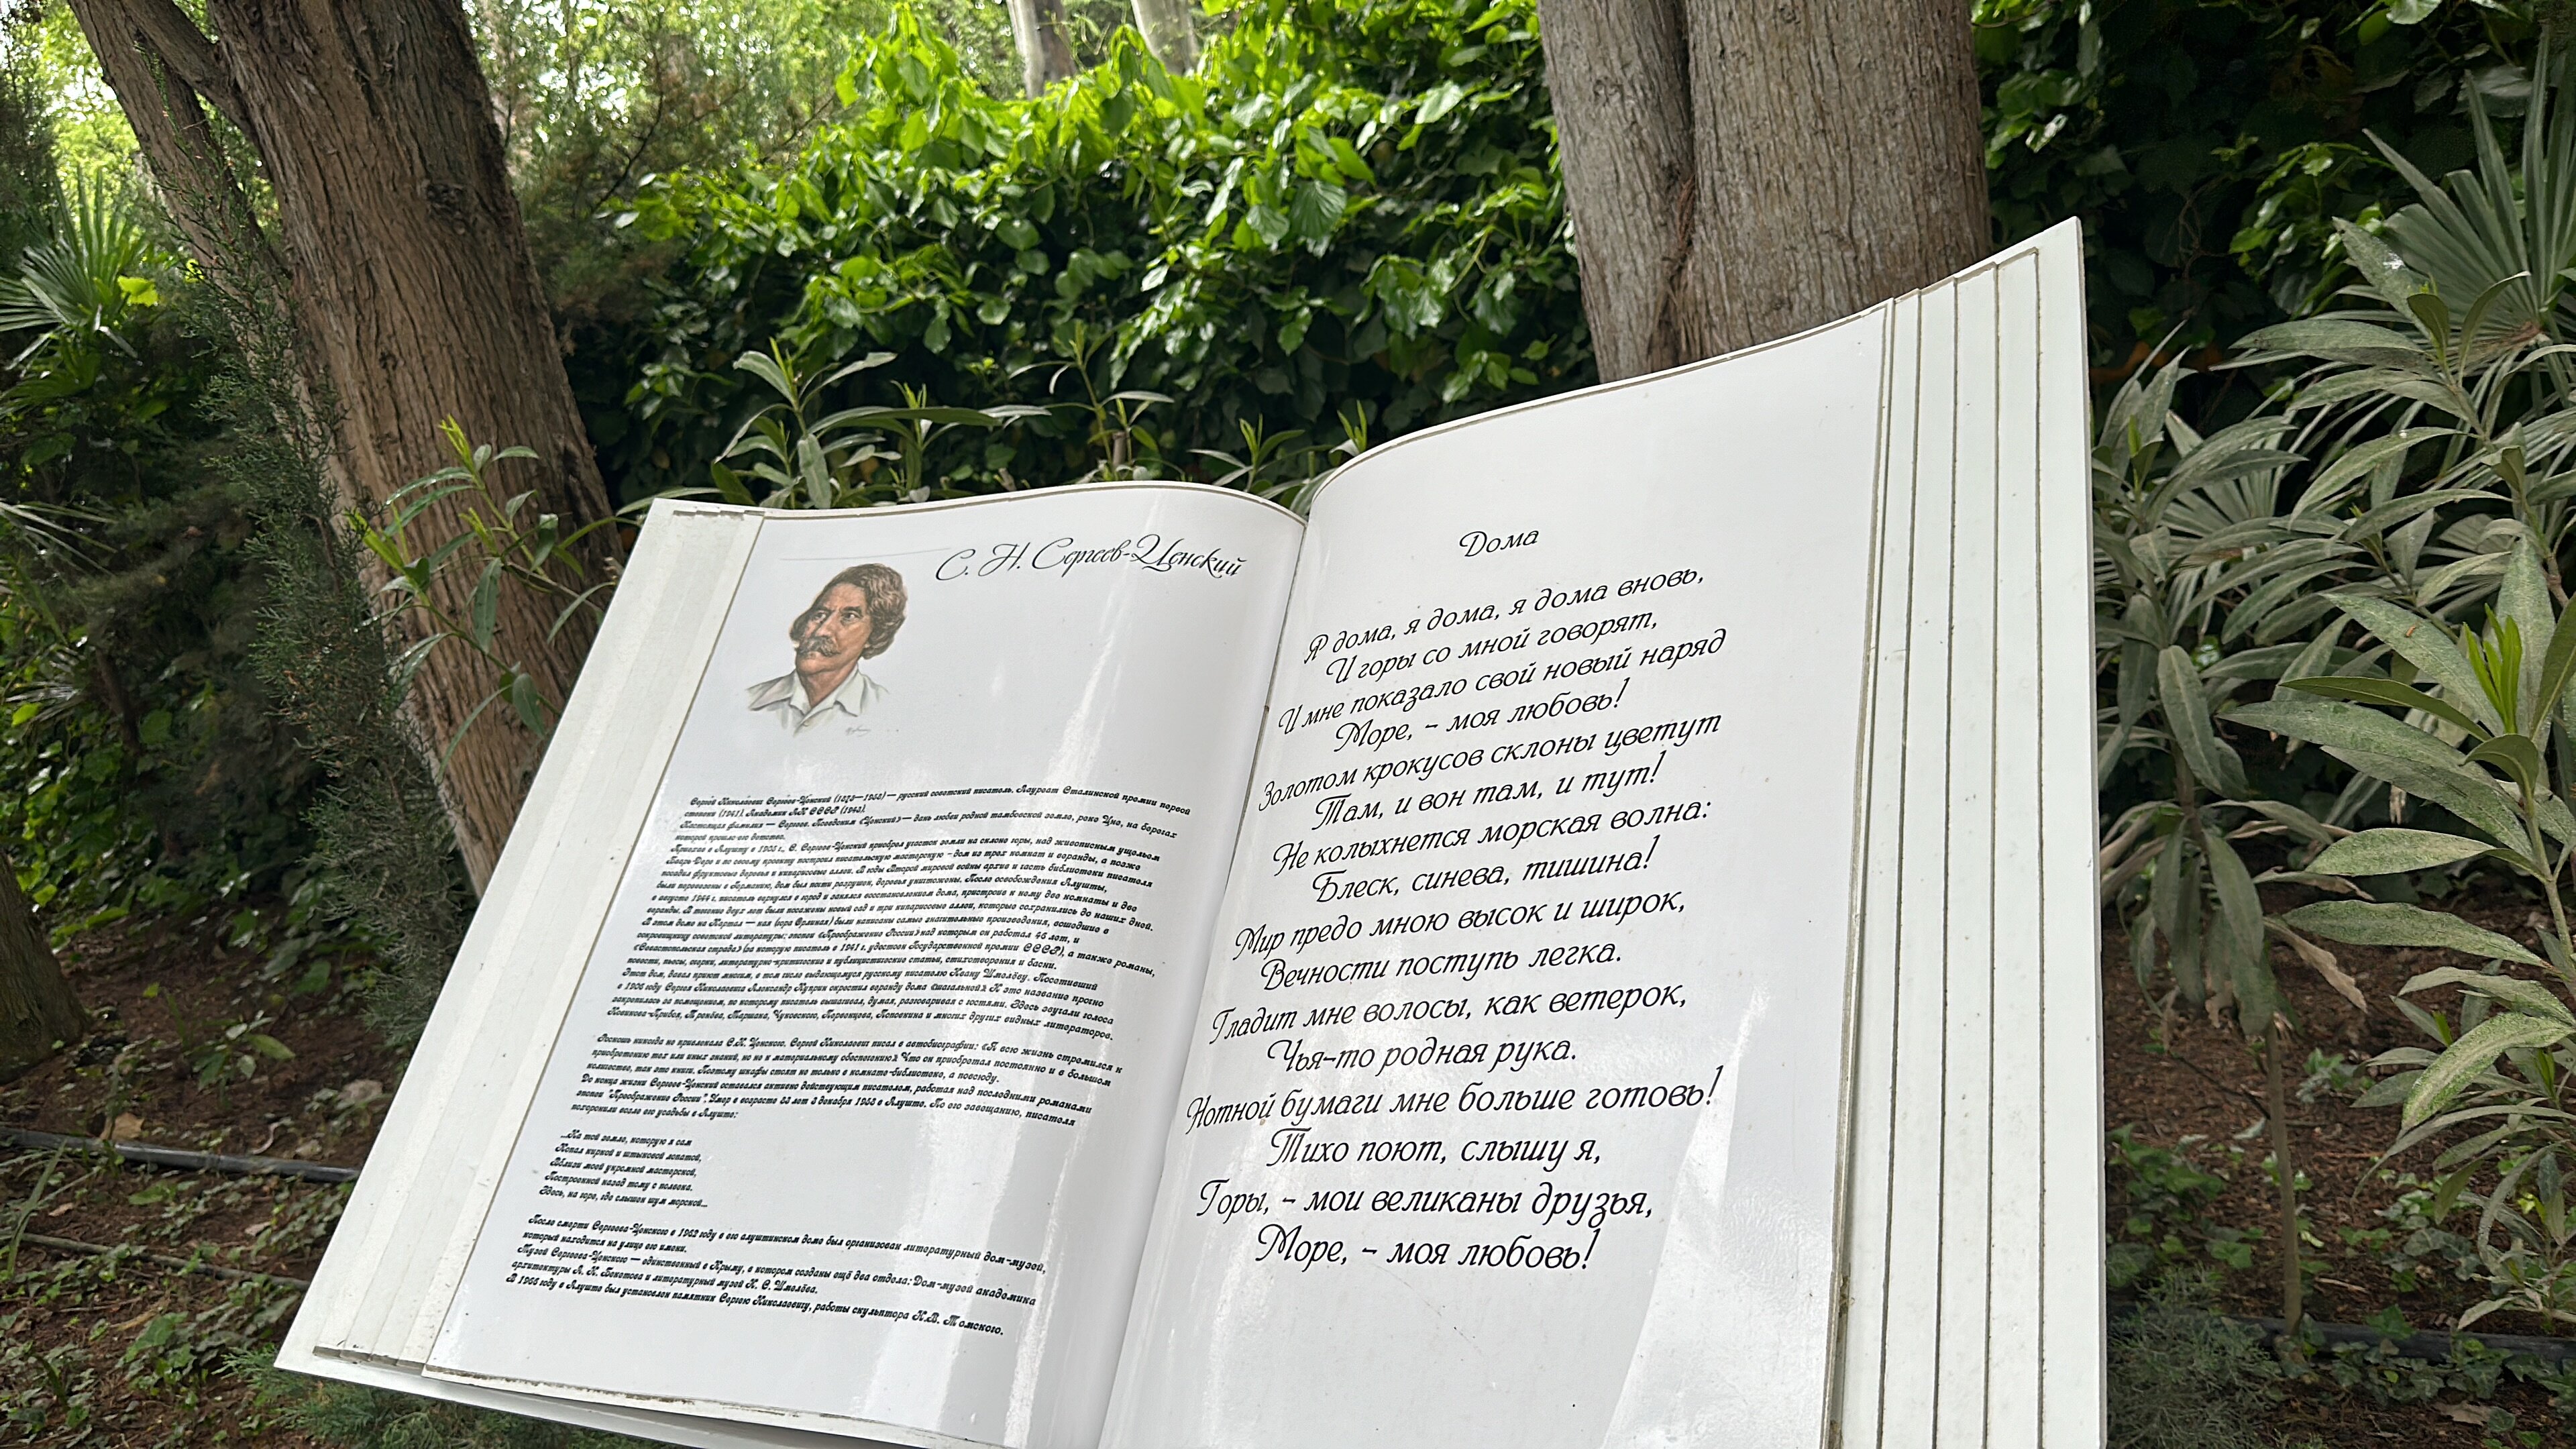 С. Н. Сергеев-Ценский
Сергей Николаевич Сергеев-Ценский (1875—1958) — русский советский писатель. Лауреат Сталинской премии первой
степени (1941). Академик АН СССР (1943).
Настоящая фамилия — Сергеев. Псевдоним «Ценский» — дань любви родной тамбовской земле, реке Цне, на берегах
которой прошло его детство.
Приехав в Алушту в 1905 г., С. Сергеев-Ценский приобрел участок земли на склоне горы, над живописным ущельем
и по своему проекту построил писательскую мастерскую - дом из трех комнат и веранды, а позже
посадил фруктовые деревья и кипарисовые аллеи. В годы Второй мировой войны архив и часть библиотеки писателя
были перевезены в Германию, дом был почти разрушен, деревья уничтожены. После освобождения Алушты,
в августе 1944 г., писатель вернулся в город и занялся восстановлением дома, пристроив к нему две комнаты и две
веранды. В течение двух лет были посажены новый сад и три кипарисовые аллеи, которые сохранились до наших дней.
В этом доме на (гора Орлиная) были написаны самые значительные произведения, вошедшие в
сокровищницу советской литературы: эпопея «Преображение России» над которым он работал 45 лет, и
«Севастопольская страда» (за которую писатель в 1941 г. удостоен Государственной премии СССР), а также романы,
повести, пьесы, очерки, литературно-критические и публицистические статьи, стихотворения и басни.
Этот дом, давал приют многим, в том числе выдающемуся русскому писателю Ивану Шмелёву. Посетивший
в 1906 году Сергея Николаевича Александр Куприн окрестил веранду дома «шагальней». И это название прочно
закрепилось за помещением, по которому писатель вышагивал, думая, разговаривая с гостями. Здесь звучали голоса
Новикова-Прибоя, Тренёва, Маршака, Чуковского, Первенцева, Поповкина и многих других видных литераторов.
Роскошь никогда не привлекала С.Н. Ценского. Сергей Николаевич писал в автобиографии: «Я всю жизнь стремился к
приобретению тех или иных знаний, но не к материальному обеспечению». Что он приобретал постоянно и в большом
количестве, так это книги. Поэтому шкафы стоят не только в комнате-библиотеке, а повсюду.
До конца жизни Сергеев-Ценский оставался активно действующим писателем, работая над последними романами
эпопеи "Преображение России". Умер в возрасте 83 лет 3 декабря 1958 в Алуште. По его завещанию, писателя
похоронили возле его усадьбы в Алуште:
...На той земле, которую я сам
Копал киркой и штыковой лопатой,
Вблизи моей укромной мастерской,
Построенной назад тому с полвека.
Здесь, на горе, где слышен шум морской...
После смерти Сергеева-Ценского в 1962 году в его алуштинском доме был организован литературный дом-музей,
который находится на улице его имени.
Музей Сергеева-Ценского — единственный в Крыму, в котором созданы ещё два отдела: Дом-музей академика
архитектуры А. Н. Бекетова и литературный музей И. С. Шмелёва.
В 1966 году в Алуште был установлен памятник Сергею Николаевичу, работы скульптора Н.В. Томского.
Дома
Я дома, я дома, я дома вновь,
И горы со мной говорят,
И мне показало свой новый наряд
Море, - моя любовь!
Золотом крокусов склоны цветут
Там, и вон там, и тут!
Не колыхнется морская волна:
Блеск, синева, тишина!
Мир предо мною высок и широк,
Вечности поступь легка.
Гладит мне волосы, как ветерок,
Чья-то родная рука.
Нотной бумаги мне больше готовь!
Тихо поют, слышу я,
Горы, - мои великаны друзья,
Море, - моя любовь!